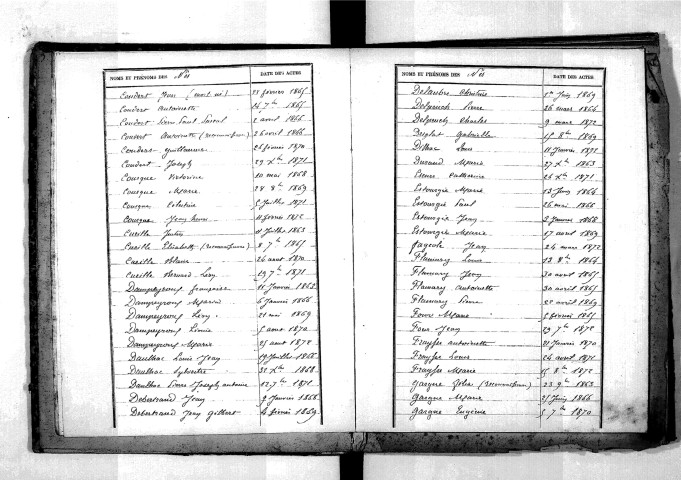 NOMS ET PRÉNOMS DES Nés DATE DES ACTES
Coudert Jean (mort né) 25 février 1865
Coudert Antoinette 14 7bre 1865
Coudert Pierre Paul 2 avril 1866
Coudert Antoinette (reconnaissance) 26 avril 1866
Couderc Guillaume 26 février 1870
Coudert Joseph 29 Xbre 1871
Cousque Victorine 10 mai 1868
Cousque Marie 28 8bre 1869
Cousque Célestine 5 Juillet 1871
Cousque Jean 11 février 1872
Cueille Justin 11 Juillet 1863
Cueille Elisabeth (reconnaissance) 8 7bre 1865
Cueille Blaise 24 août 1870
Cueille Bernard Léon 29 7bre 1871
Dampeyrous françoise 11 Janvier 1863
Dampeyrous Marie 6 Janvier 1866
Dampeyrous Léon 21 mai 1869
Dampeyrous Léonie 5 août 1870
Dampeyrous Marie 25 août 1872
Daulhac Louis Jean 19 Juillet 1866
Daulhac Sylvestre 31 Xbre 1868
Daulhac Pierre Joseph Antoine 12 7bre 1871
Debertrand Jean 9 Janvier 1866
Debertrand Jean Gilbert 4 février 1869
NOMS ET PRÉNOMS DES Nés DATE DES ACTES
Christine 1er Juin 1869
Delpeuch Pierre 26 mars 1864
Delpeuch Charles 9 mars 1872
Gabrielle 15 8bre 1869
Dilhac 11 Janvier 1871
Durand Marie 27 Xbre 1863
Catherine 24 Xbre 1871
Estourgie Marie 13 Juin 1864
Estourgie Paul 26 mai 1866
Estourgie Jean 3 Janvier 1868
Estourgie Marie 17 août 1869
fageole Jean 24 mars 1872
Flamary Louis 13 8bre 1864
Flamary Jean 30 avril 1865
Flamary Antoinette 30 avril 1865
Flamary Pierre 22 avril 1869
Four Marie 5 février 1865
Four Jean 29 7bre 1872
Fraysse Antoinette 31 Janvier 1870
Fraysse Louis 24 avril 1871
Fraysse Marie 15 8bre 1872
Gargne (reconnaissance) 23 9bre 1863
Gargne Marie 25 Juin 1866
Gargne Eugénie 5 7bre 1870